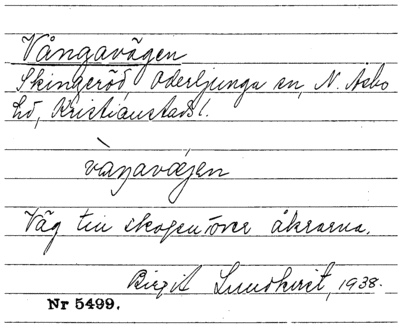 Vångavägen
Skingeröd, Oderljunga sn, N. Åsbo
hd, Kristianstads l.
Väg till skogen över åkrarna.
Birgit Lundkvist, 1938.
Nr 5499.